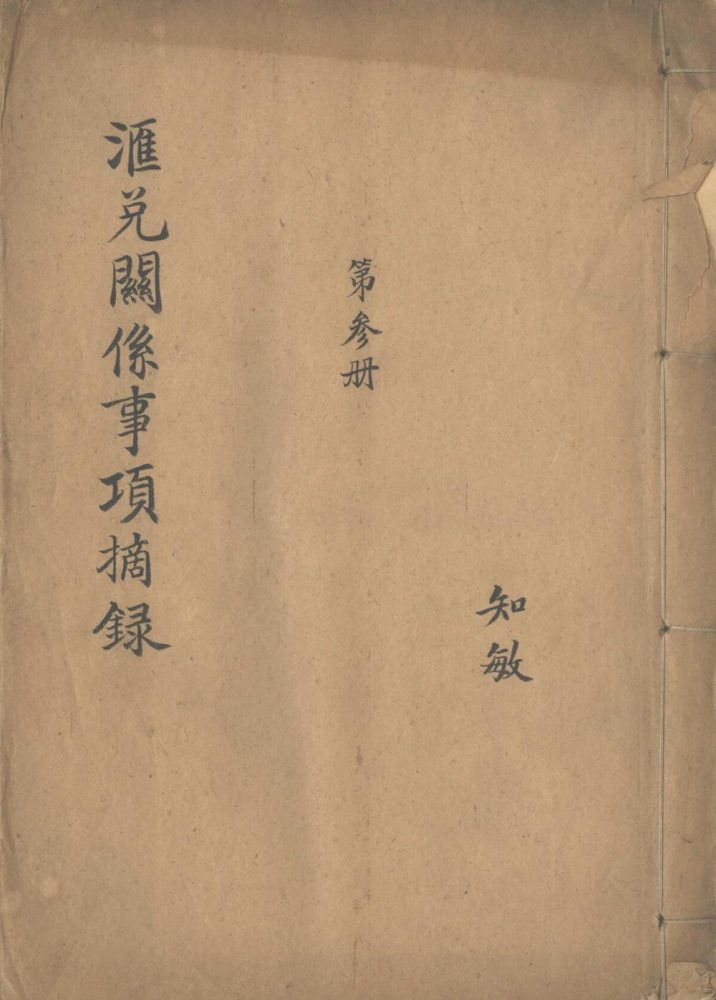 知敏
第叁册
滙兑關係事項摘録